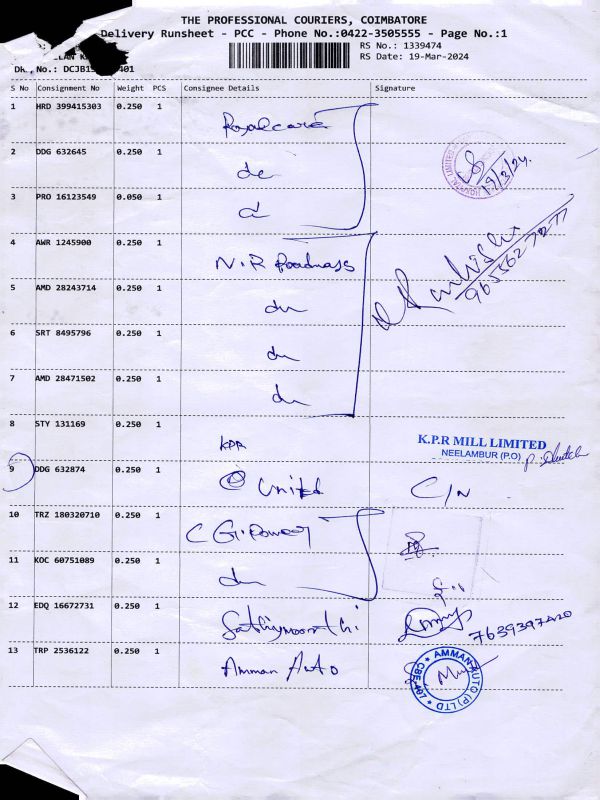 THE PROFESSIONAL COURIERS, COIMBATORE
Delivery Runsheet - PCC - Phone No.:0422-3505555 - Page No.:1
RS No.: 1339474
RS Date: 19-Mar-2024
No.: DCJB1 401
S No Consignment No Weight PCS Consignee Details Signature
1 HRD 399415303 0.250 1 Royalcare
2 DDG 632645 0.250 1 do
HOSPITAL LIMITED
19/3/24.
3 PRO 16123549 0.050 1 d
4 AWR 1245900 0.250 1 N.R
5 AMD 28243714 0.250 1 du
6 SRT 8495796 0.250 1 du
7 AMD 28471502 0.250 1 du
8 STY 131169 0.250 1 KPR
K.P.R MILL LIMITED
NEELAMBUR (P.O)
9 DDG 632874 0.250 1 United C/N
10 TRZ 180320710 0.250 1 C G. Power
11 KOC 60751089 0.250 1 du
12 EDQ 16672731 0.250 1 Sathiymoorthi
13 TRP 2536122 0.250 1 Amman Auto
AMMAN AUTO (P) LTD